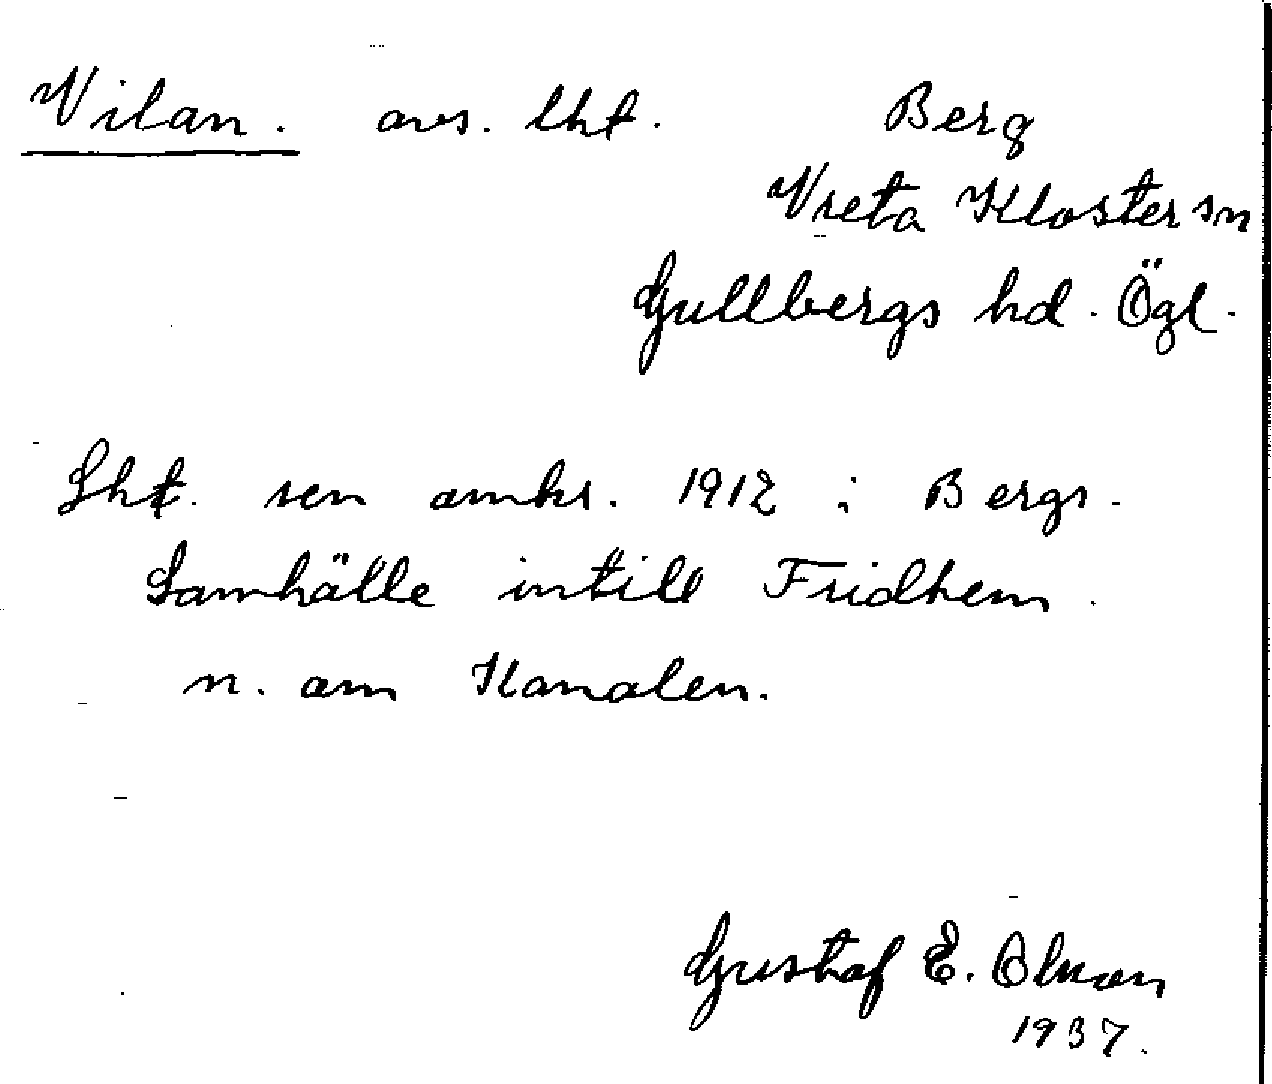 Vilan. avs. lht. Berg
Vreta Kloster sn
Gullbergs hd. Ögl.
Lht. sen omkr. 1912 i Bergs-
Samhälle intill Fridhem.
n. om Kanalen.
Gustaf E. Olson
1937.